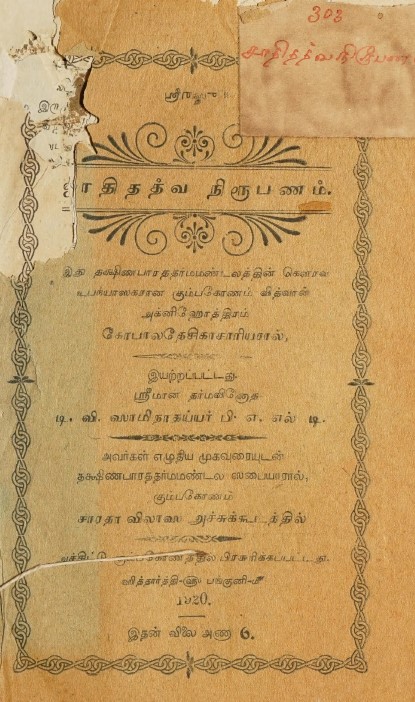 303
ஜாதிதத்வநிரூபண
ஸ்ரீ
ாதிதத்வ நிரூபணம்.
இது தக்ஷிணபாரததர்மமண்டலத்தின் கௌரவ
உபந்யாஸகரான கும்பகோணம் வித்வான்
அக்னிஹோத்திரம்
கோபாலதேசிகாசாரியரால்,
இயற்றப்பட்டது.
ஸ்ரீமான் தர்மதிலோக
டி. வி. ஸாமிநாதய்யர் பி. ஏ. எல் டி.
அவர்கள் எழுதிய முகவுரையுடன்
தக்ஷிணபாரததர்மமண்டல ஸபையாரால்,
கும்பகோணம்
சாரதா விலாஸ அச்சுக்கூடத்தில்
அச்சிட்டு கும்பகோணத்தில் பிரசுரிக்கப்பட்டது.
ஸித்தார்த்தி-ஹு பங்குனி-மீ
1920.
இதன் விலை அணா 6.